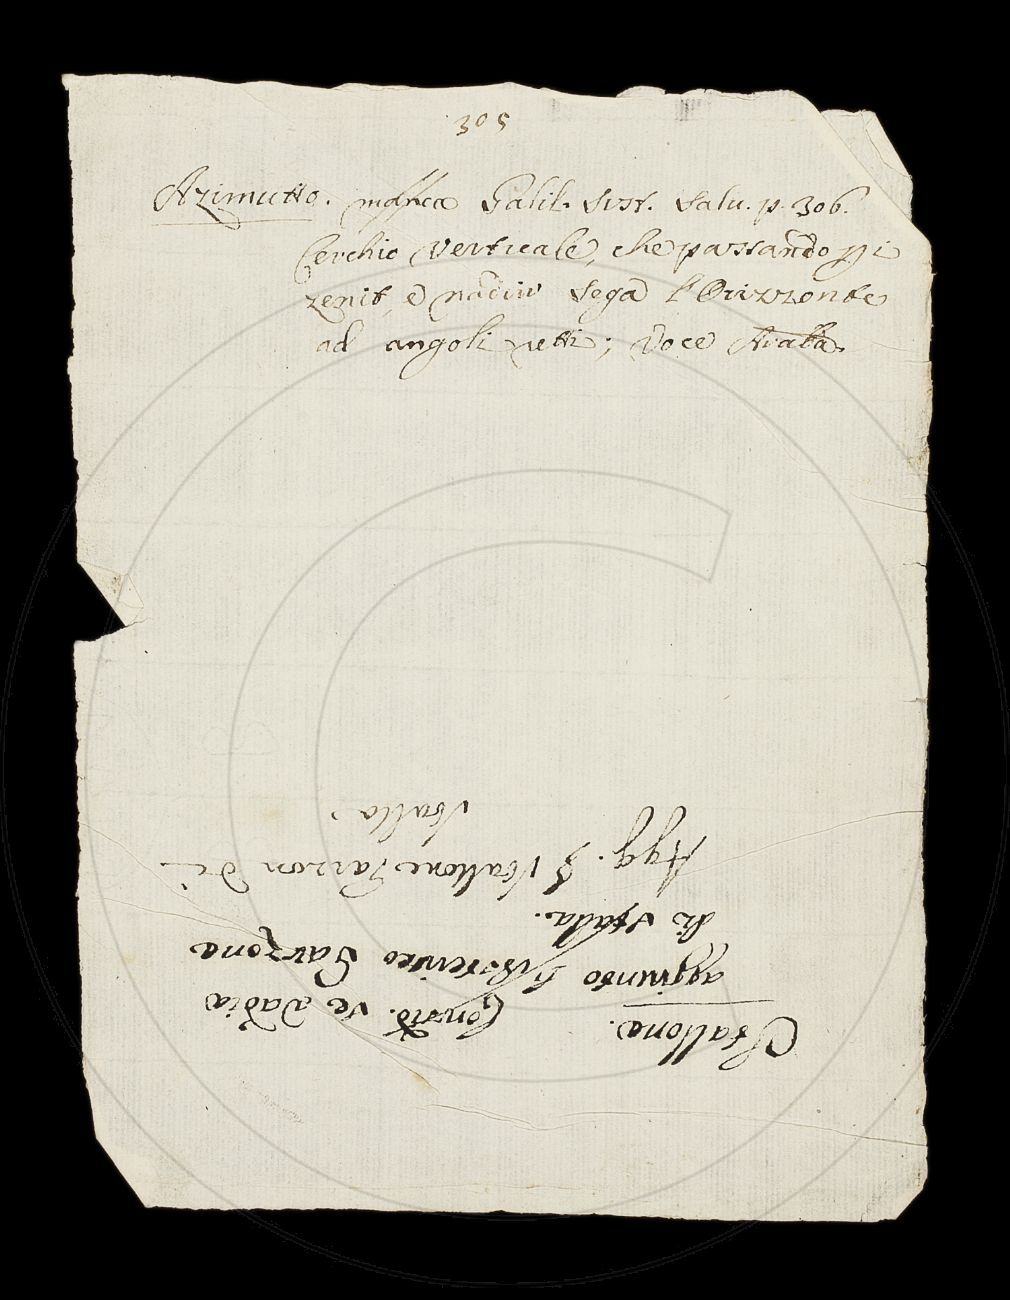 305
Azimutto. manca Galil. Sist. Salv. p. 306.
Cerchio Verticale, che passando pei
zenit, e nadir sega l'Orizzonte
ad angoli retti; Voce Araba.
Stallone.
aggiunto Garzone
di stalla.
Agg. Stallone Garzon di
stalla